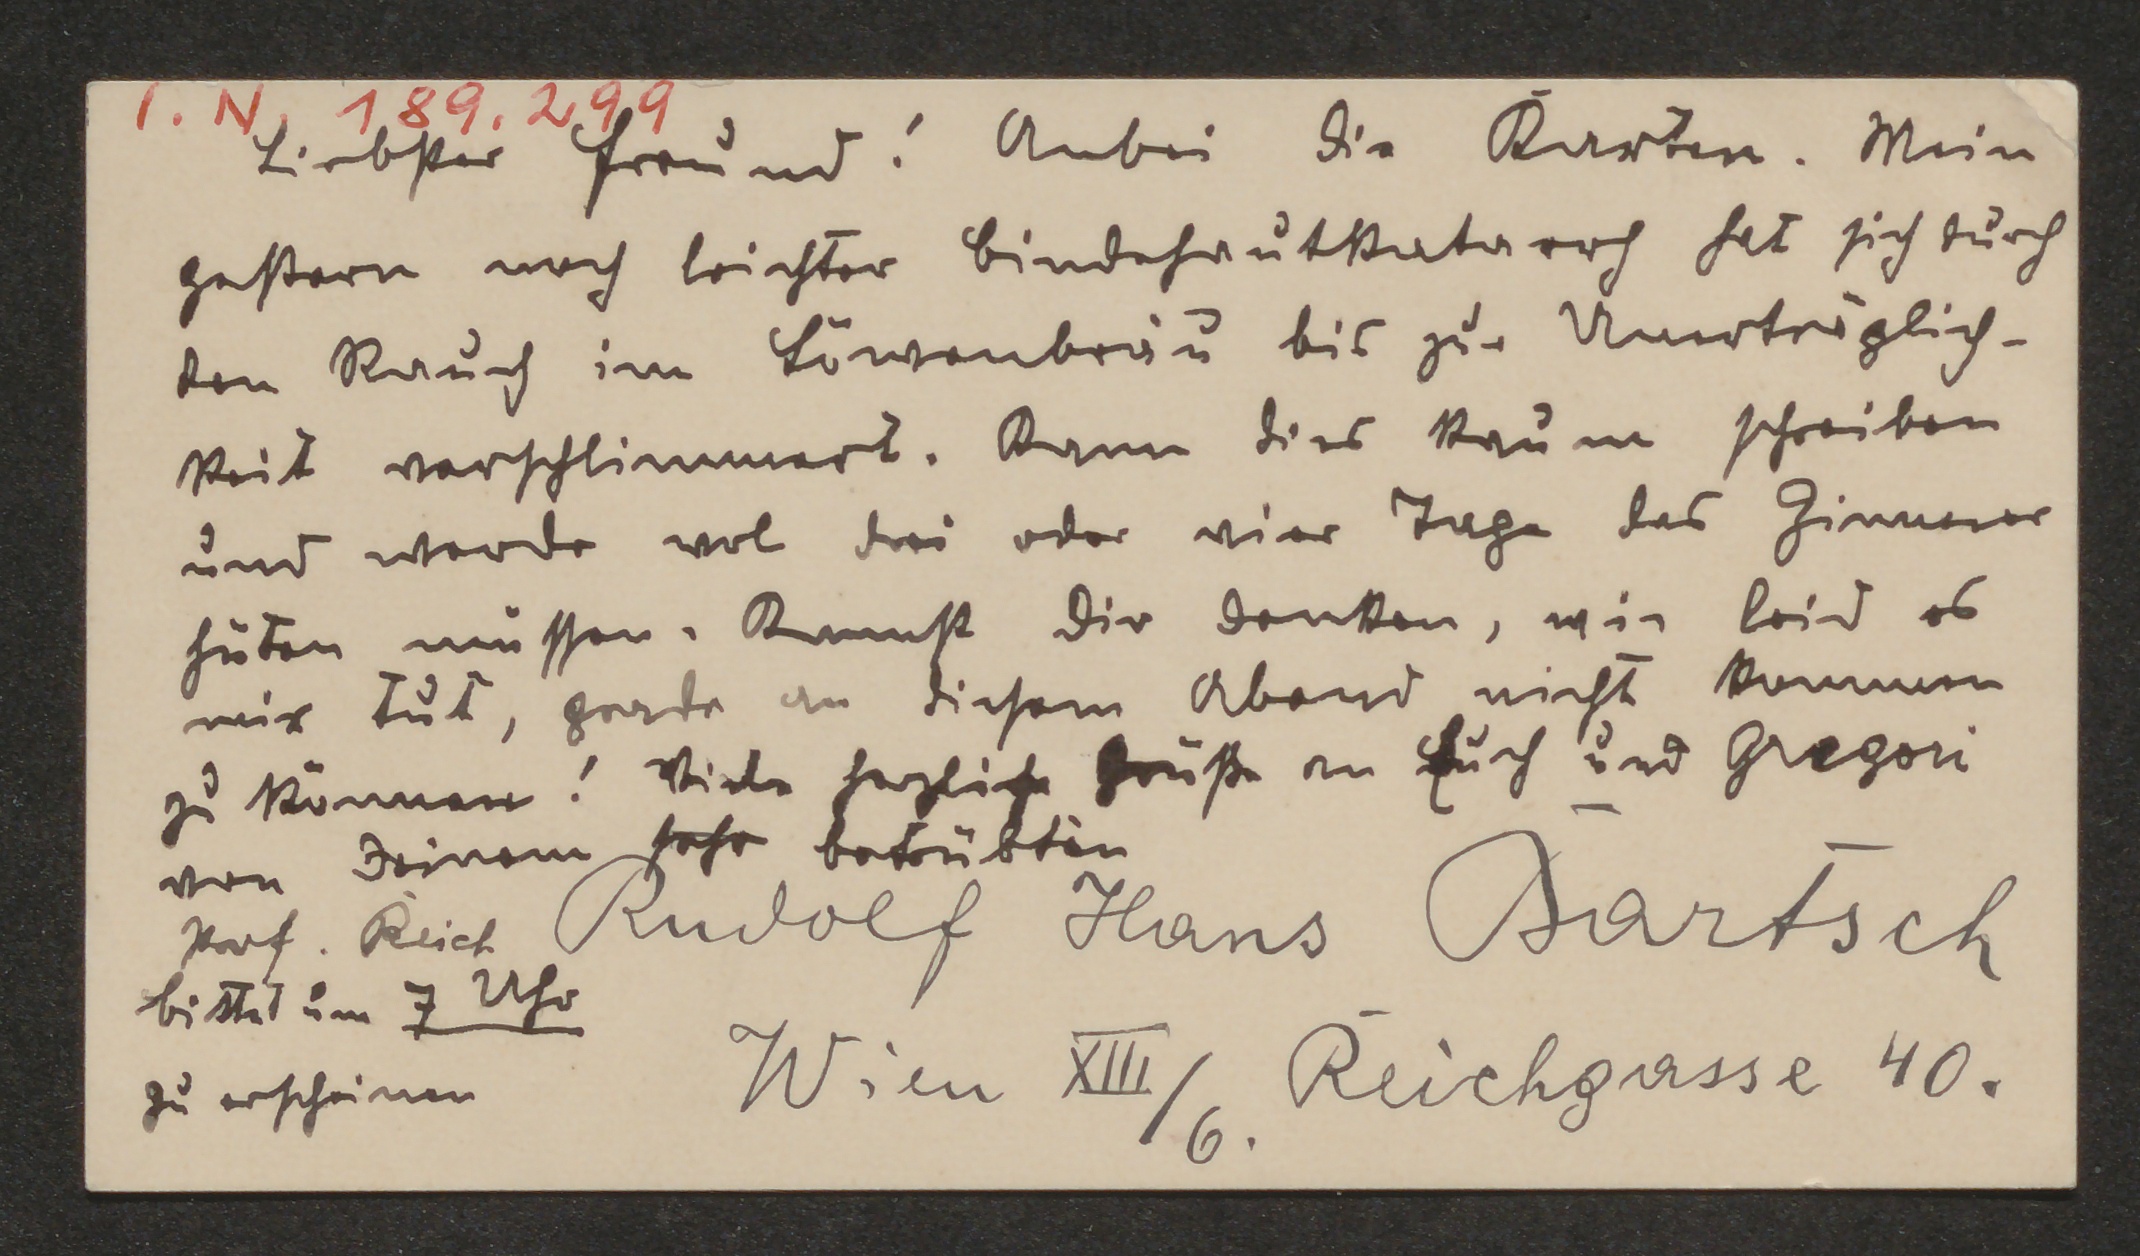 I. N. 189.299
Liebster Freund! Anbei die Karten. Mein
gestern noch leichter Bindehautkatarrh hat sich durch
den Rauch im Löwenbräu bis zur Unerträglich-
keit verschlimmert. Kann dies kaum schreiben
und werde wol drei oder vier Tage das Zimmer
hüten müssen. Kannst Dir denken, wie leid es
mir tut, grade an diesem Abend nicht kommen
zu können! Viele herzliche Grüße an Euch und Gregori
von Deinem sehr betrübten
Rudolf Hans Bartsch
Prof. Reich
bittet um 7 Uhr
zu erscheinen
Wien XIII/6. Reichgasse 40.